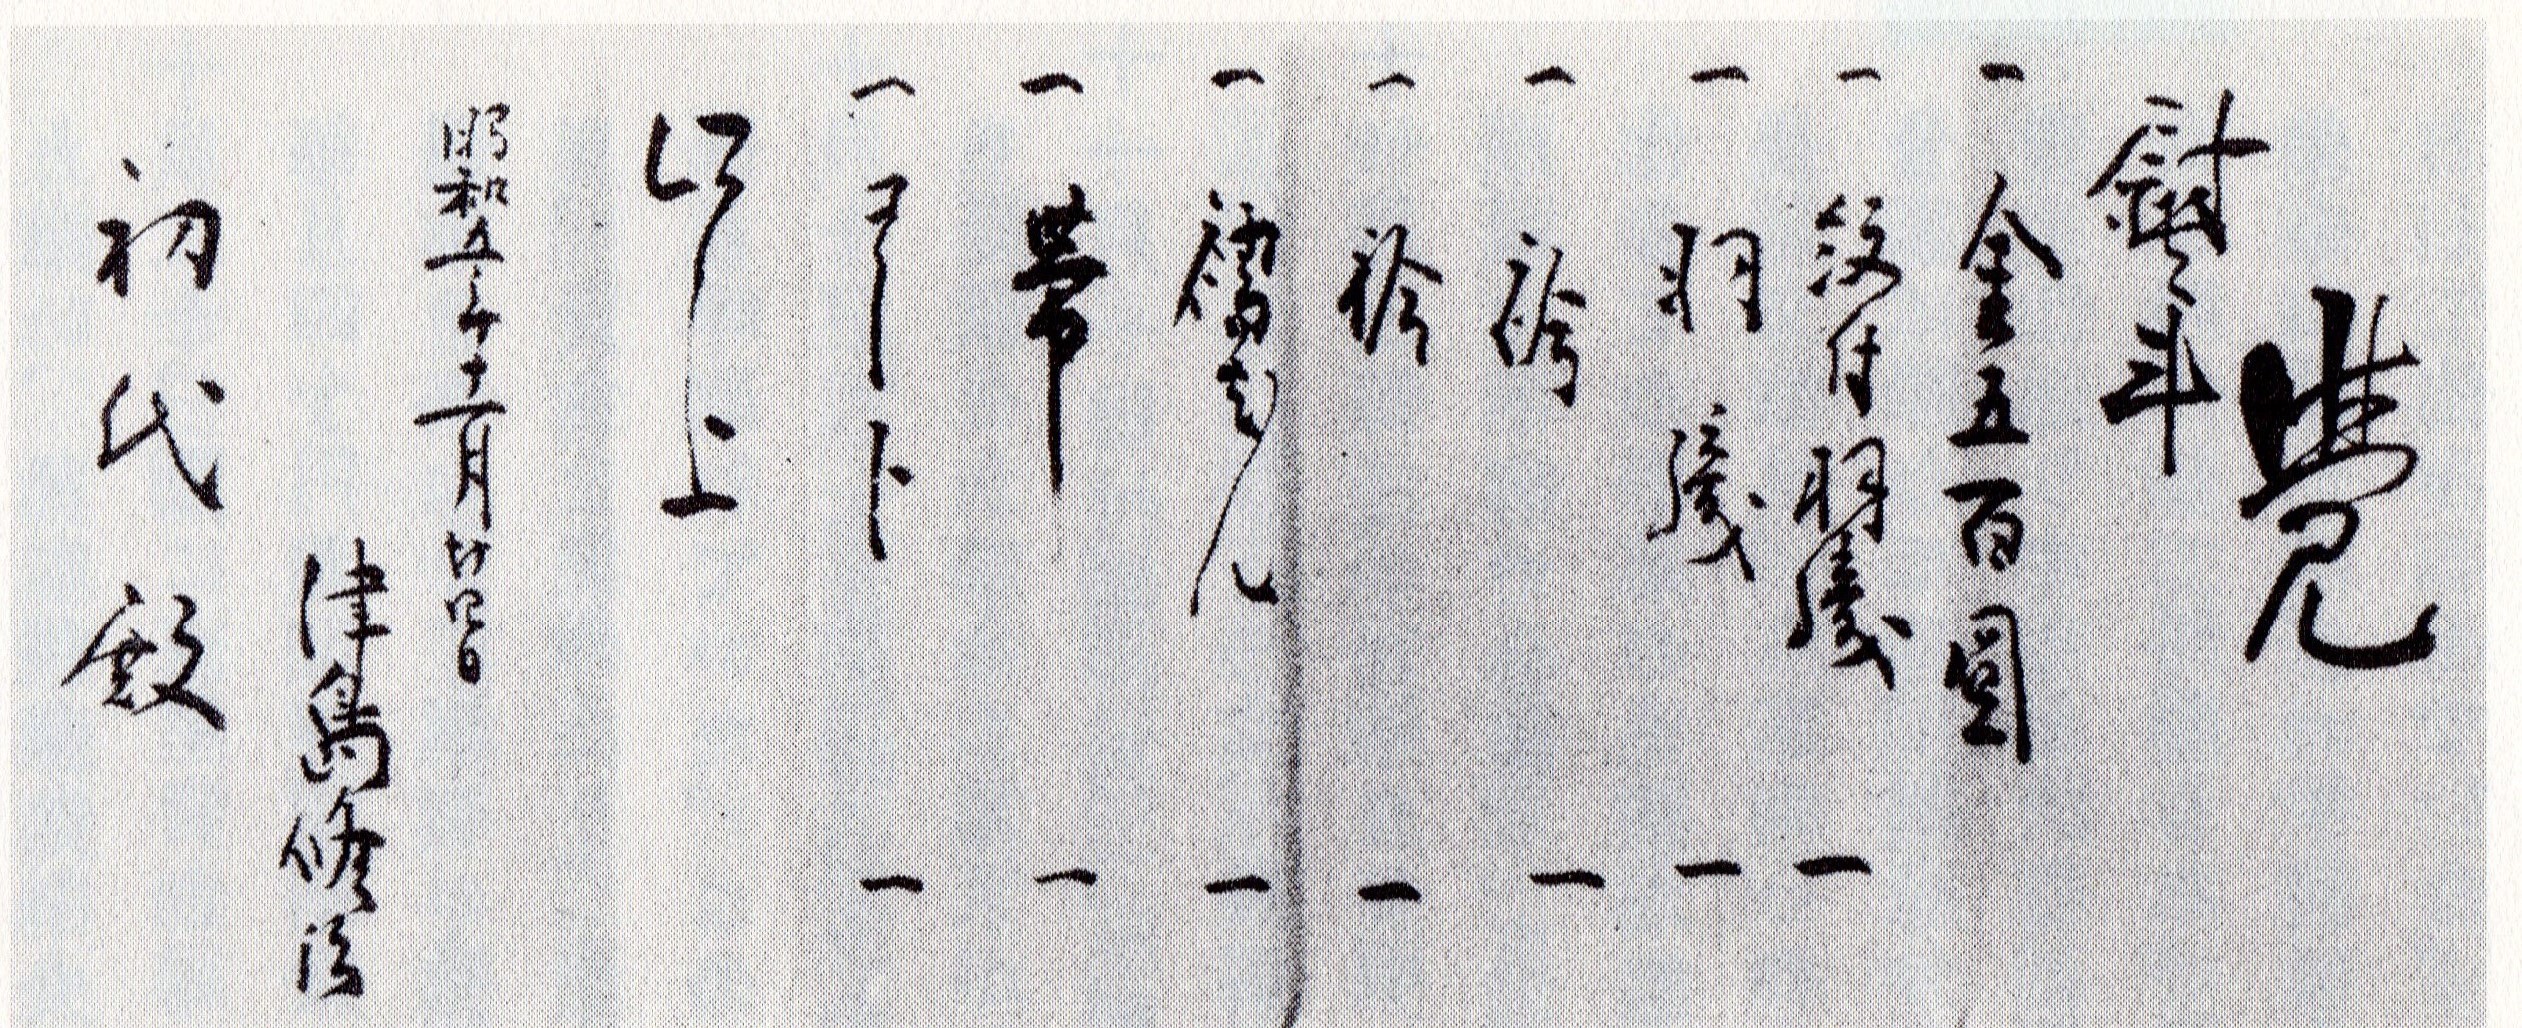 覚
熨斗
一 金五百圓
一 紋付羽織 一
一 羽織 一
一 袴 一
一 袷 一
一 襦はん 一
一 帯 一
一 コート 一
以上
昭和五年十一月廿四日
津島修治
初代殿